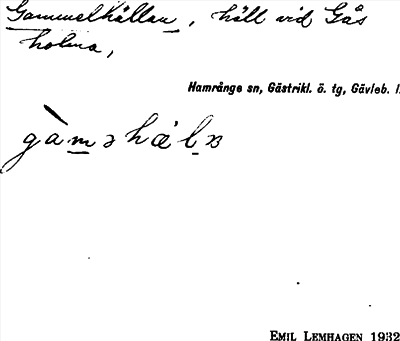 Gammelhällan, häll vid Gås
holma,
Hamrånge sn, Gästrikl. ö. tg, Gävleb. l.
gàmǝhælɴ
EMIL LEMHAGEN 1932